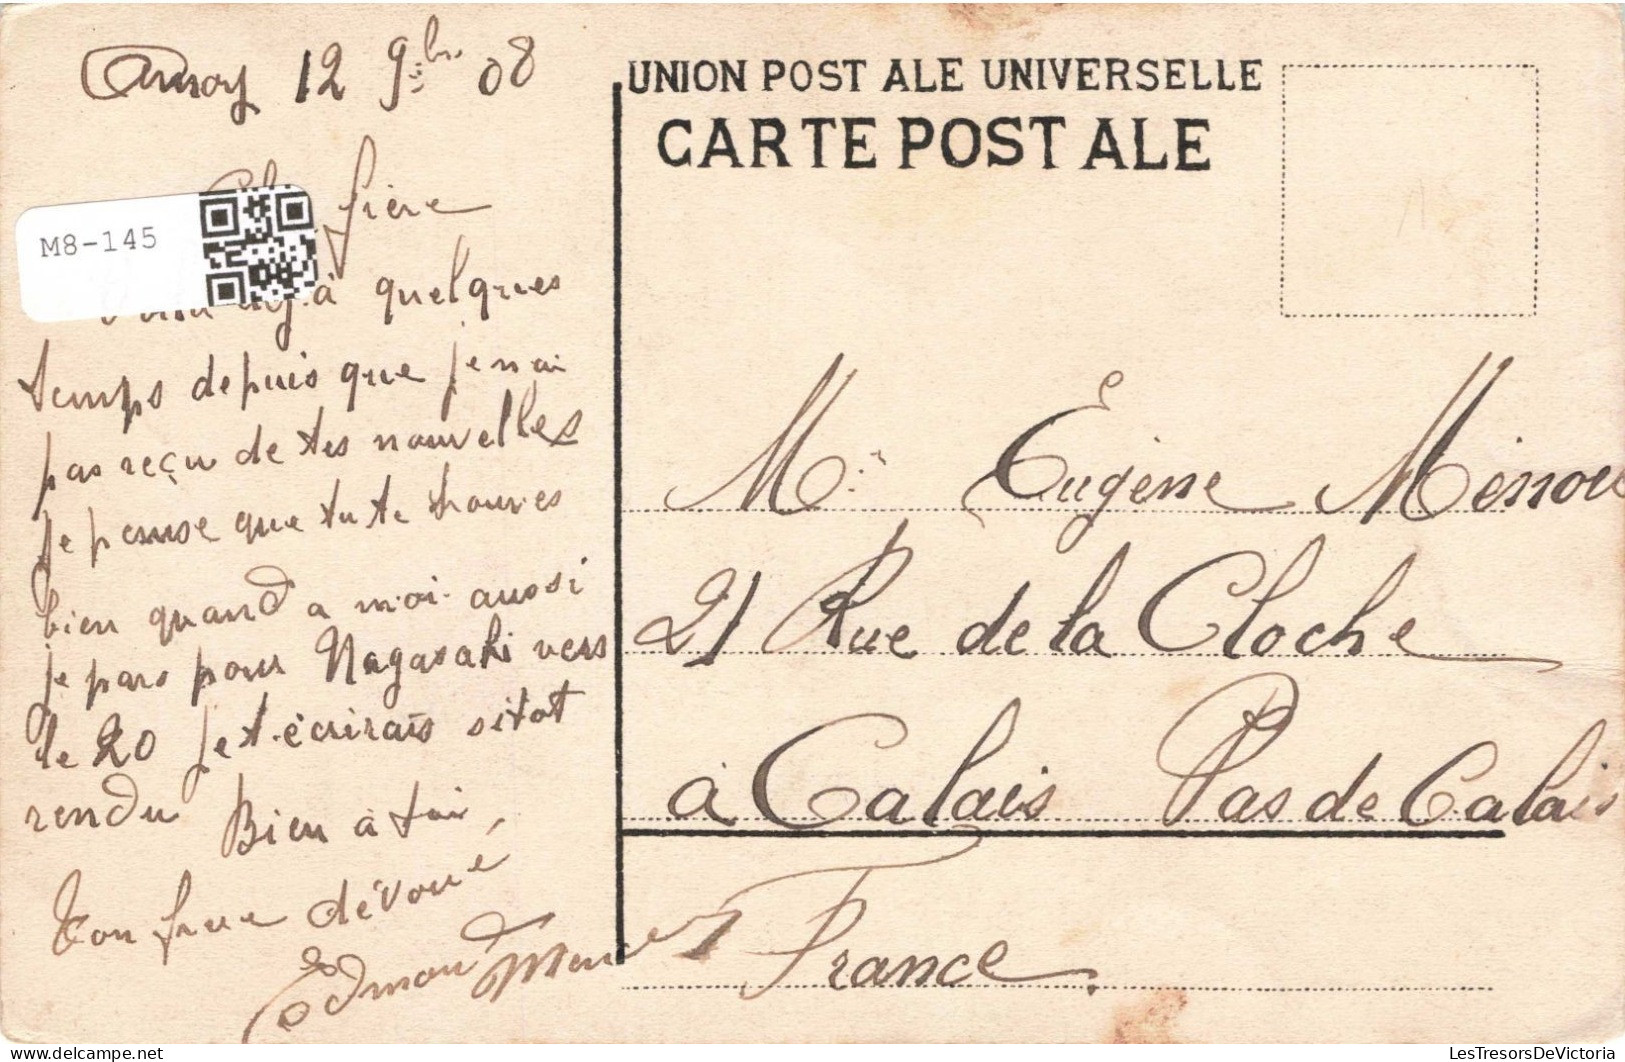 Amoy 12 9bre 08
frère
M8-145
quelques
temps depuis que je nai
pas reçu de tes nouvelles
je pense que tu te trouves
bien quand a moi aussi
je pars pour Nagasaki vers
le 20 je t'écrirais sitot
rendu Bien à toi,
Ton frere dévoué
Edmond
UNION POSTALE UNIVERSELLE
CARTE POSTALE
Mr Eugène
21 Rue de la Cloche
à Calais Pas de Calais
France.
LesTresorsDeVictoria